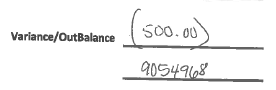 Variance/OutBalance (500.00)
9054968